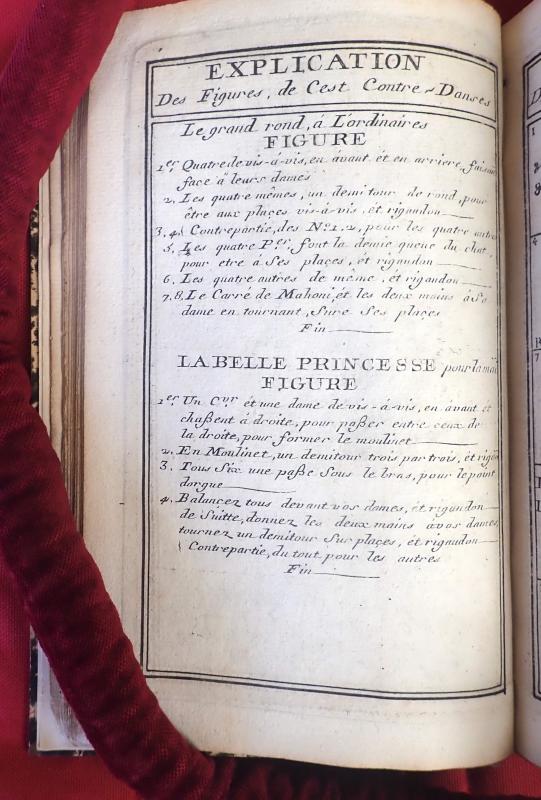 EXPLICATION
Des Figures, de Cest Contre-Danses
Le grand rond, á L'ordinaires
FIGURE
1er. Quatre de vis-á-vis, en avant et en arriere, faisant
face a leurs dames
2. Les quatre mêmes, un demi tour de rond, pour
être aux plaçes vis-á-vis, ét rigaudon
3, 4. Contrepartie, des No. 1. 2, pour les quatre autres
5. Les quatre Per. font la demie queue du chat,
pour etre á Ses plaçes, ét rigaudon
6. Les quatre autres de même, ét rigaudon
7. 8. Le Carré de Mahoni, ét les deux mains á Sa
dame en tournant, Sure Ses plaçes
Fin
LA BELLE PRINCESSE pour la main
FIGURE
1er. Un Cvr ét une dame de vis-á-vis, en avant et
chaßent á droite, pour paßer entre ceux de
la droite, pour former le moulinet
2. En Moulinet, un demitour trois par trois, ét rigau
3. Tous Six une paße Sous le bras, pour le point
dorgue
4. Balançez tous devant vos dames, ét rigaudon
de Suitte, donnez les deux mains á vos dames,
tournez un demitour Sur plaçes, ét rigaudon
Contrepartie, du tout pour les autres
Fin